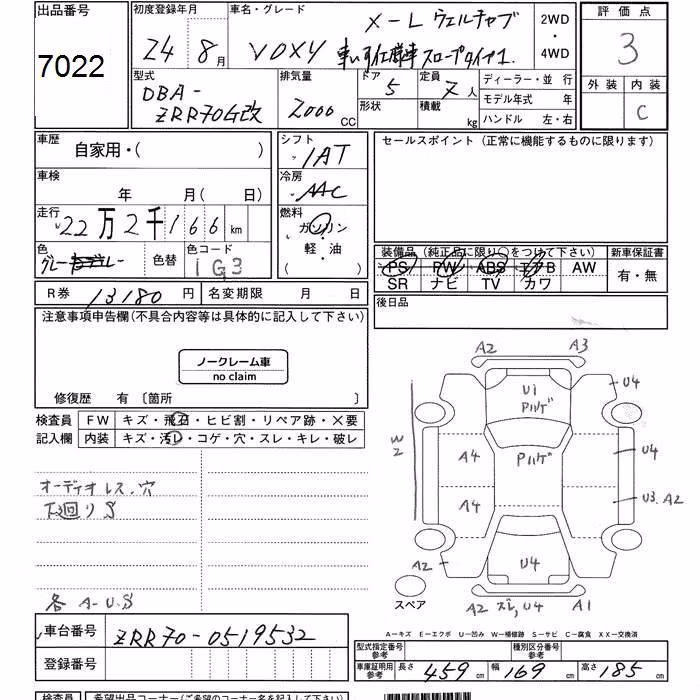 出品番号
7022
初度登録年月
24年8月
車名・グレード
X-L ウェルチャブ
VOXY 車いす仕様車 スロープタイプ1.
2WD
・
4WD
評価点
3
外装 内装
C
型式
DBA-
ZRR70G改
排気量
2000 CC
ドア 5
形状
定員 7人
積載 kg
ディーラー・並行
モデル年式 年
ハンドル 左・右
車歴
自家用・( )
シフト
IAT
車検
年 月( 日)
冷房
AAC
走行
22万2千166km
燃料
ガソリン
軽・油
( )
色
グレー
色替
色コード
1G3
R券 13180円
名変期限 月 日
セールスポイント(正常に機能するものに限ります)
装備品(純正品に限り○をつけて下さい)
PS PW ABS エアB AW
SR ナビ TV カワ
新車保証書
有・無
後日品
注意事項申告欄(不具合内容等は具体的に記入して下さい)
ノークレーム車
no claim
修復歴 有〔箇所 〕
検査員
記入欄
FW キズ・飛石・ヒビ割・リペア跡・X要
内装 キズ・汚レ・コゲ・穴・スレ・キレ・破レ
オーディオレス・穴
下廻りS
各 A-U.S
A2 A3
U1
Pハゲ
U4
W2
A4
Pハゲ
U4
A4
U3.A2
A2
U4
A2 ズレ,U4 A1
スペア
A-キズ E-エクボ U-凹み W-補修跡 S-サビ C-腐食 XX-交換済
車台番号
ZRR70-0519532
登録番号
型式指定番号
参考
種別区分番号
参考
車庫証明用
参考
長さ 459cm 幅 169cm 高さ 185cm
検査員
希望出品コーナー(ご希望のコーナー名を記入して下さい)